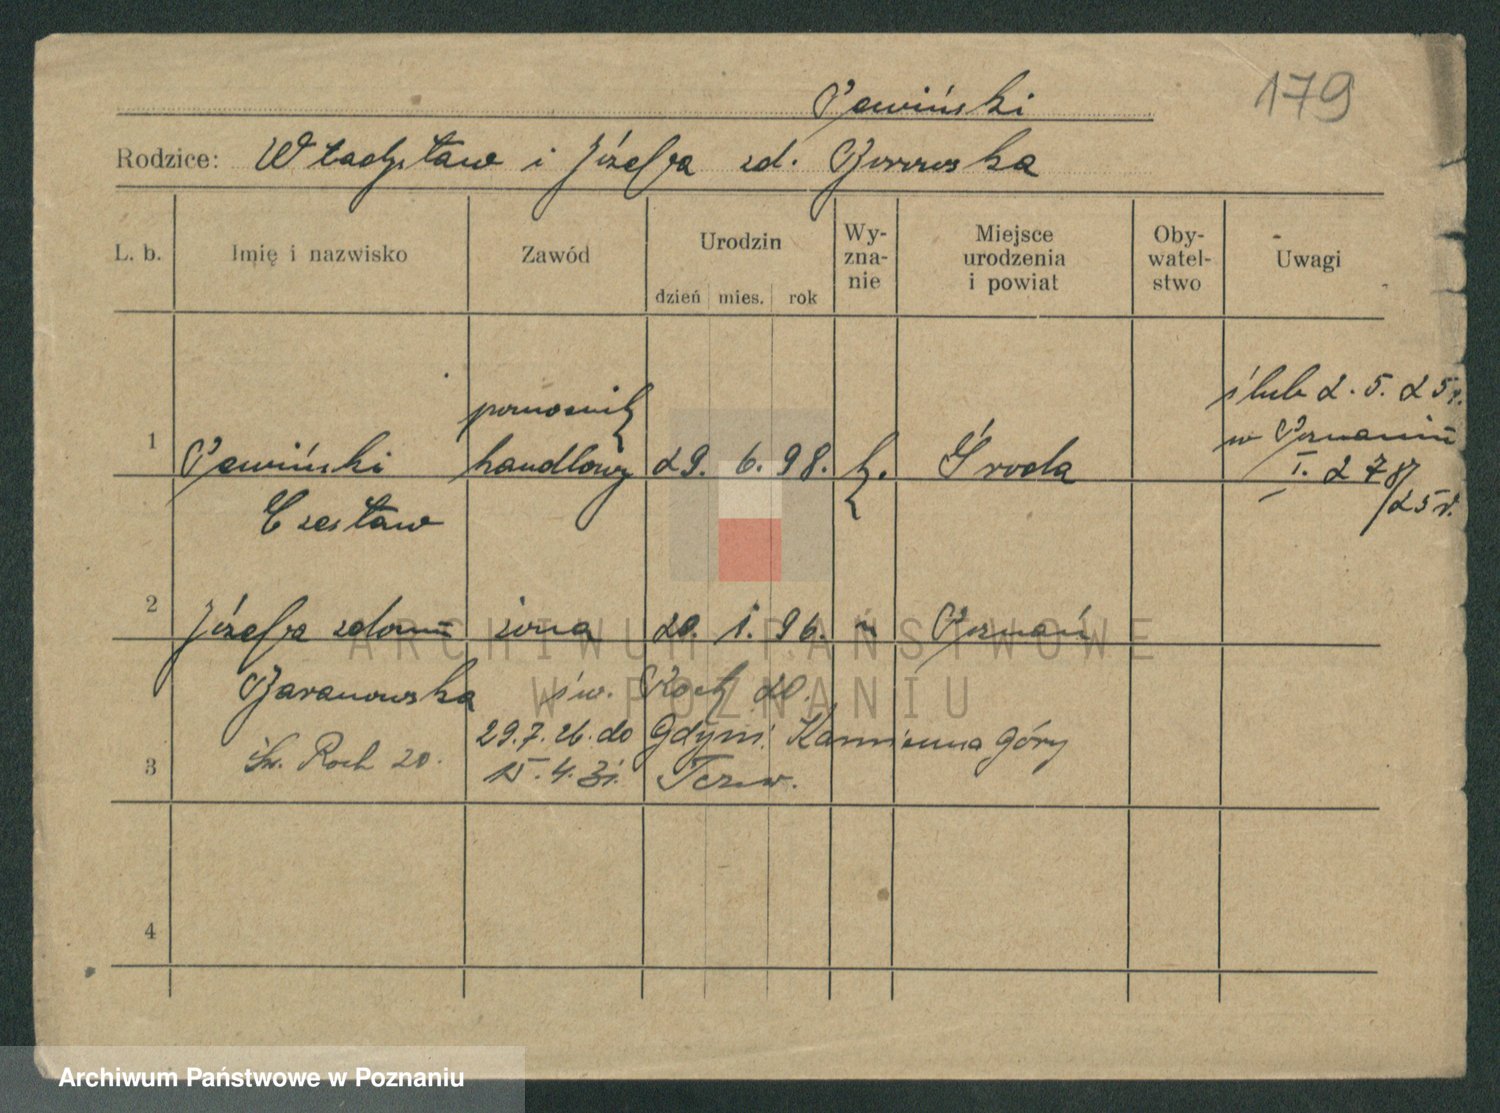 179
Pewiński
Rodzice: Władysław i Józefa zd. Borowska
L. b. Imię i nazwisko Zawód Urodzin dzień mies. rok Wy-zna-nie Miejsce urodzenia i powiat Oby-watel-stwo Uwagi
1 Pewiński Czesław pomocnik handlowy 29. 6. 98. k. Środa
ślub 2. 5. 25 r.
w Poznaniu
I. 278/
25 r.
2 Józefa z domu żona 20. 1. 96. " Poznań
Baranowska św. Roch 20.
Św. Roch 20. 29.7.26. do Gdyni. Kamienna Góry
3 15.4.31. Tczew.
4
ARCHIWUM PAŃSTWOWE
W POZNANIU
Archiwum Państwowe w Poznaniu